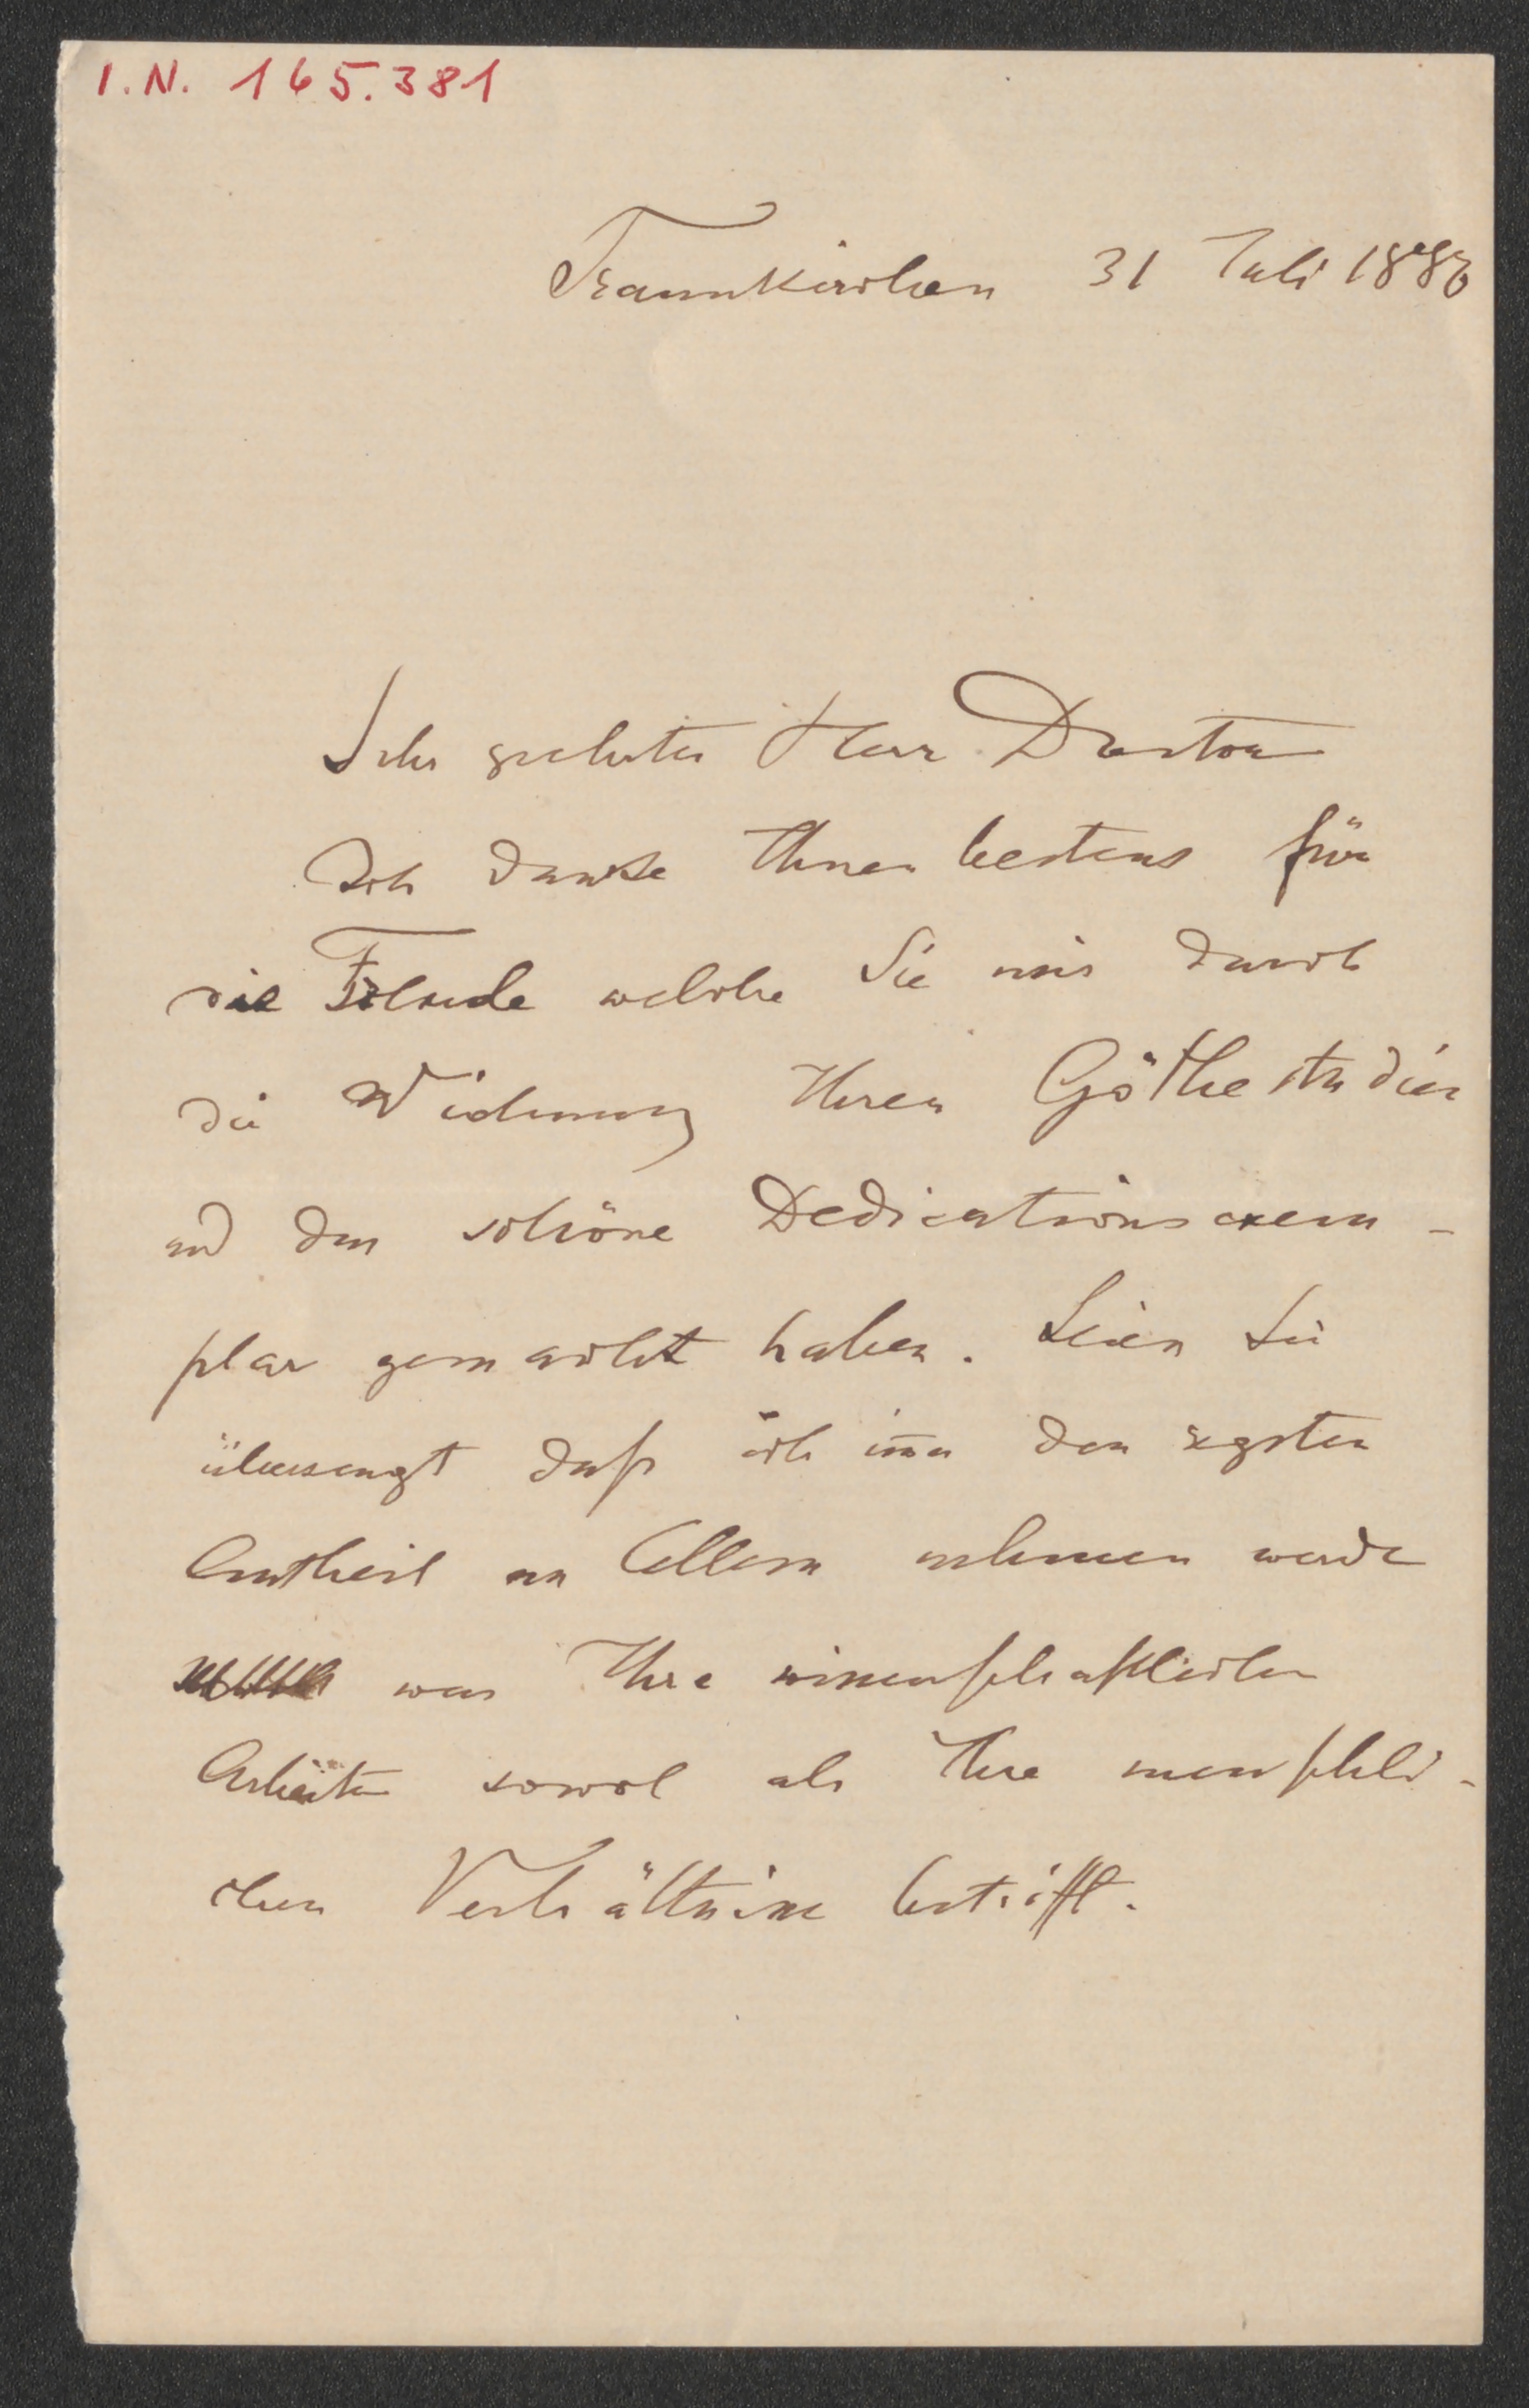 I.N. 165.381
Traunkirchen 31 Juli 1886
Sehr geehrter Herr Doctor
Ich danke Ihnen bestens für
die Freude welche Sie mir durch
die Widmung Ihrer Göthestudien
und das schöne Dedicationsexem-
plar gemacht haben. Seien Sie
überzeugt daß ich im̅er den regsten
Antheil an Allem nehmen werde
was Ihre wissenschaftlichen
Arbeiten sowol als Ihre menschli-
chen Verhältnisse betrifft.